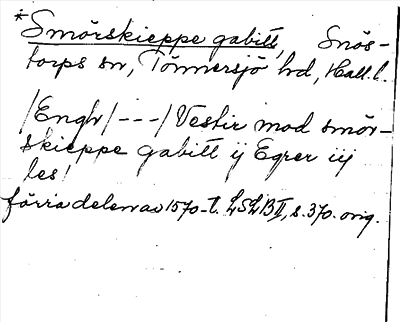 *Smörskieppe gabitt, Snös-
torps sn, Tönnersjö hd, Hall. l.
/Engh/---/Vestir mod smör-
skieppe gabitt ij Egrer iij
les/
förra delen av 1570-t. LSLB II, s. 370. orig.